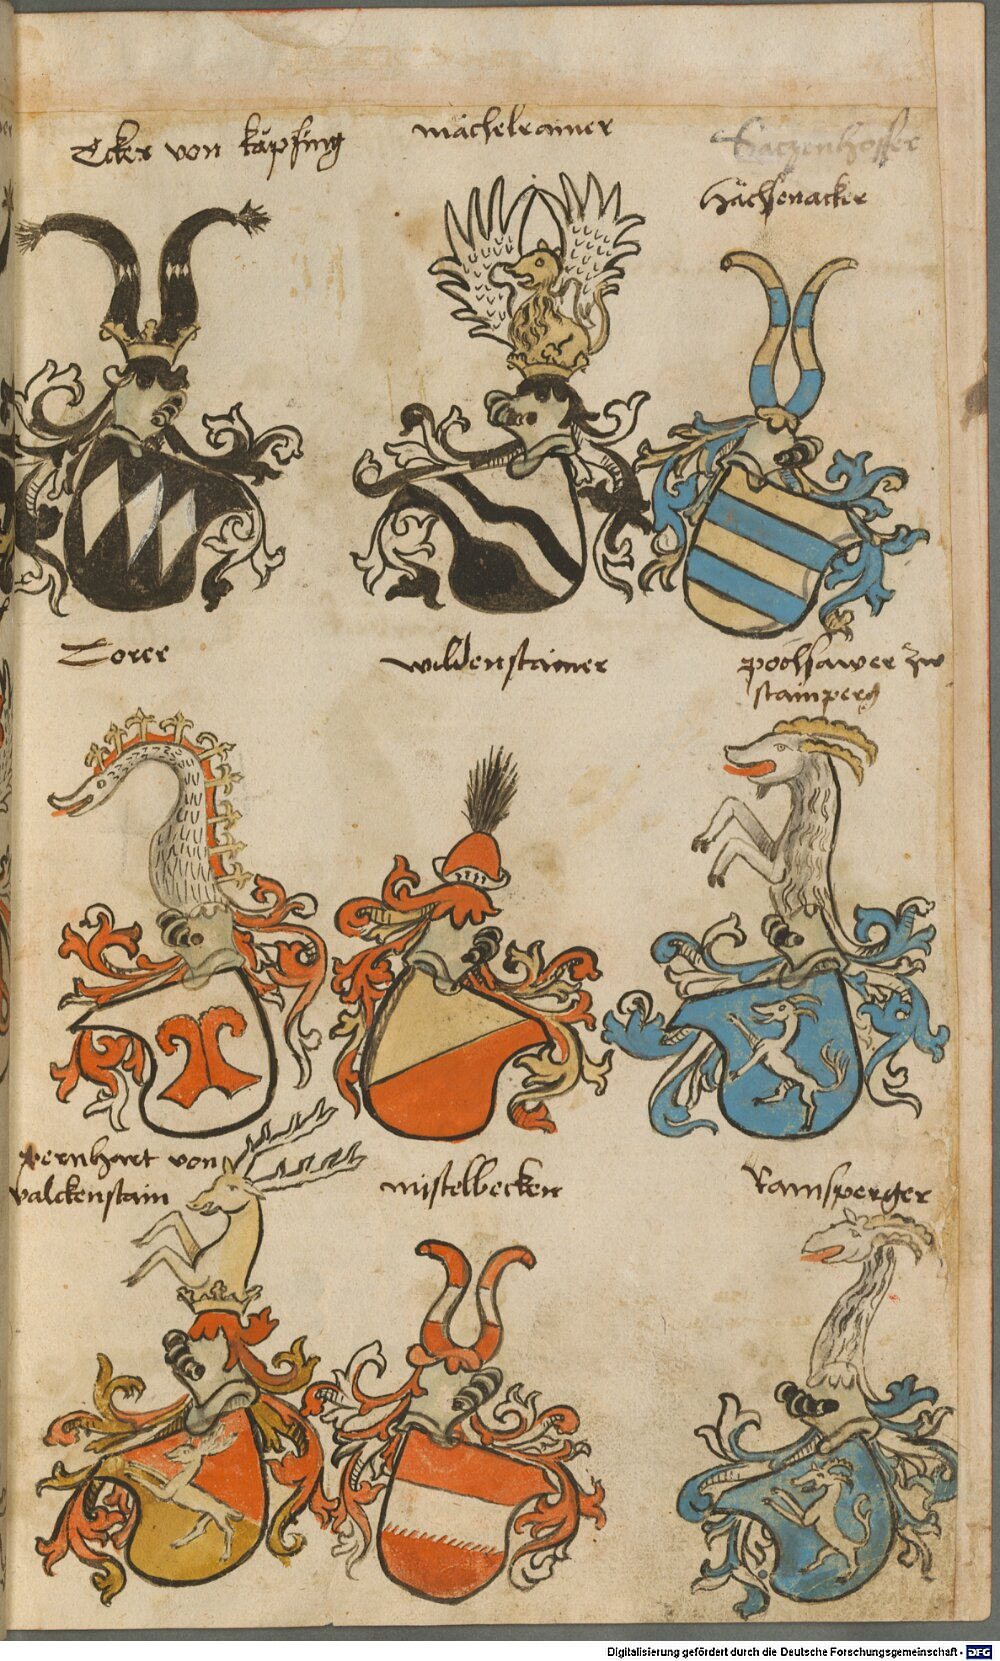 Ecker von käpfing
mächelrainer
Satzenhoffer
hächsenacker
Zorer
wildenstainer
pöchsawer zw
stainperg
pernhart von
valckenstain
mistelbecken
Ramsperger
Digitalisierung gefördert durch die Deutsche Forschungsgemeinschaft - DFG